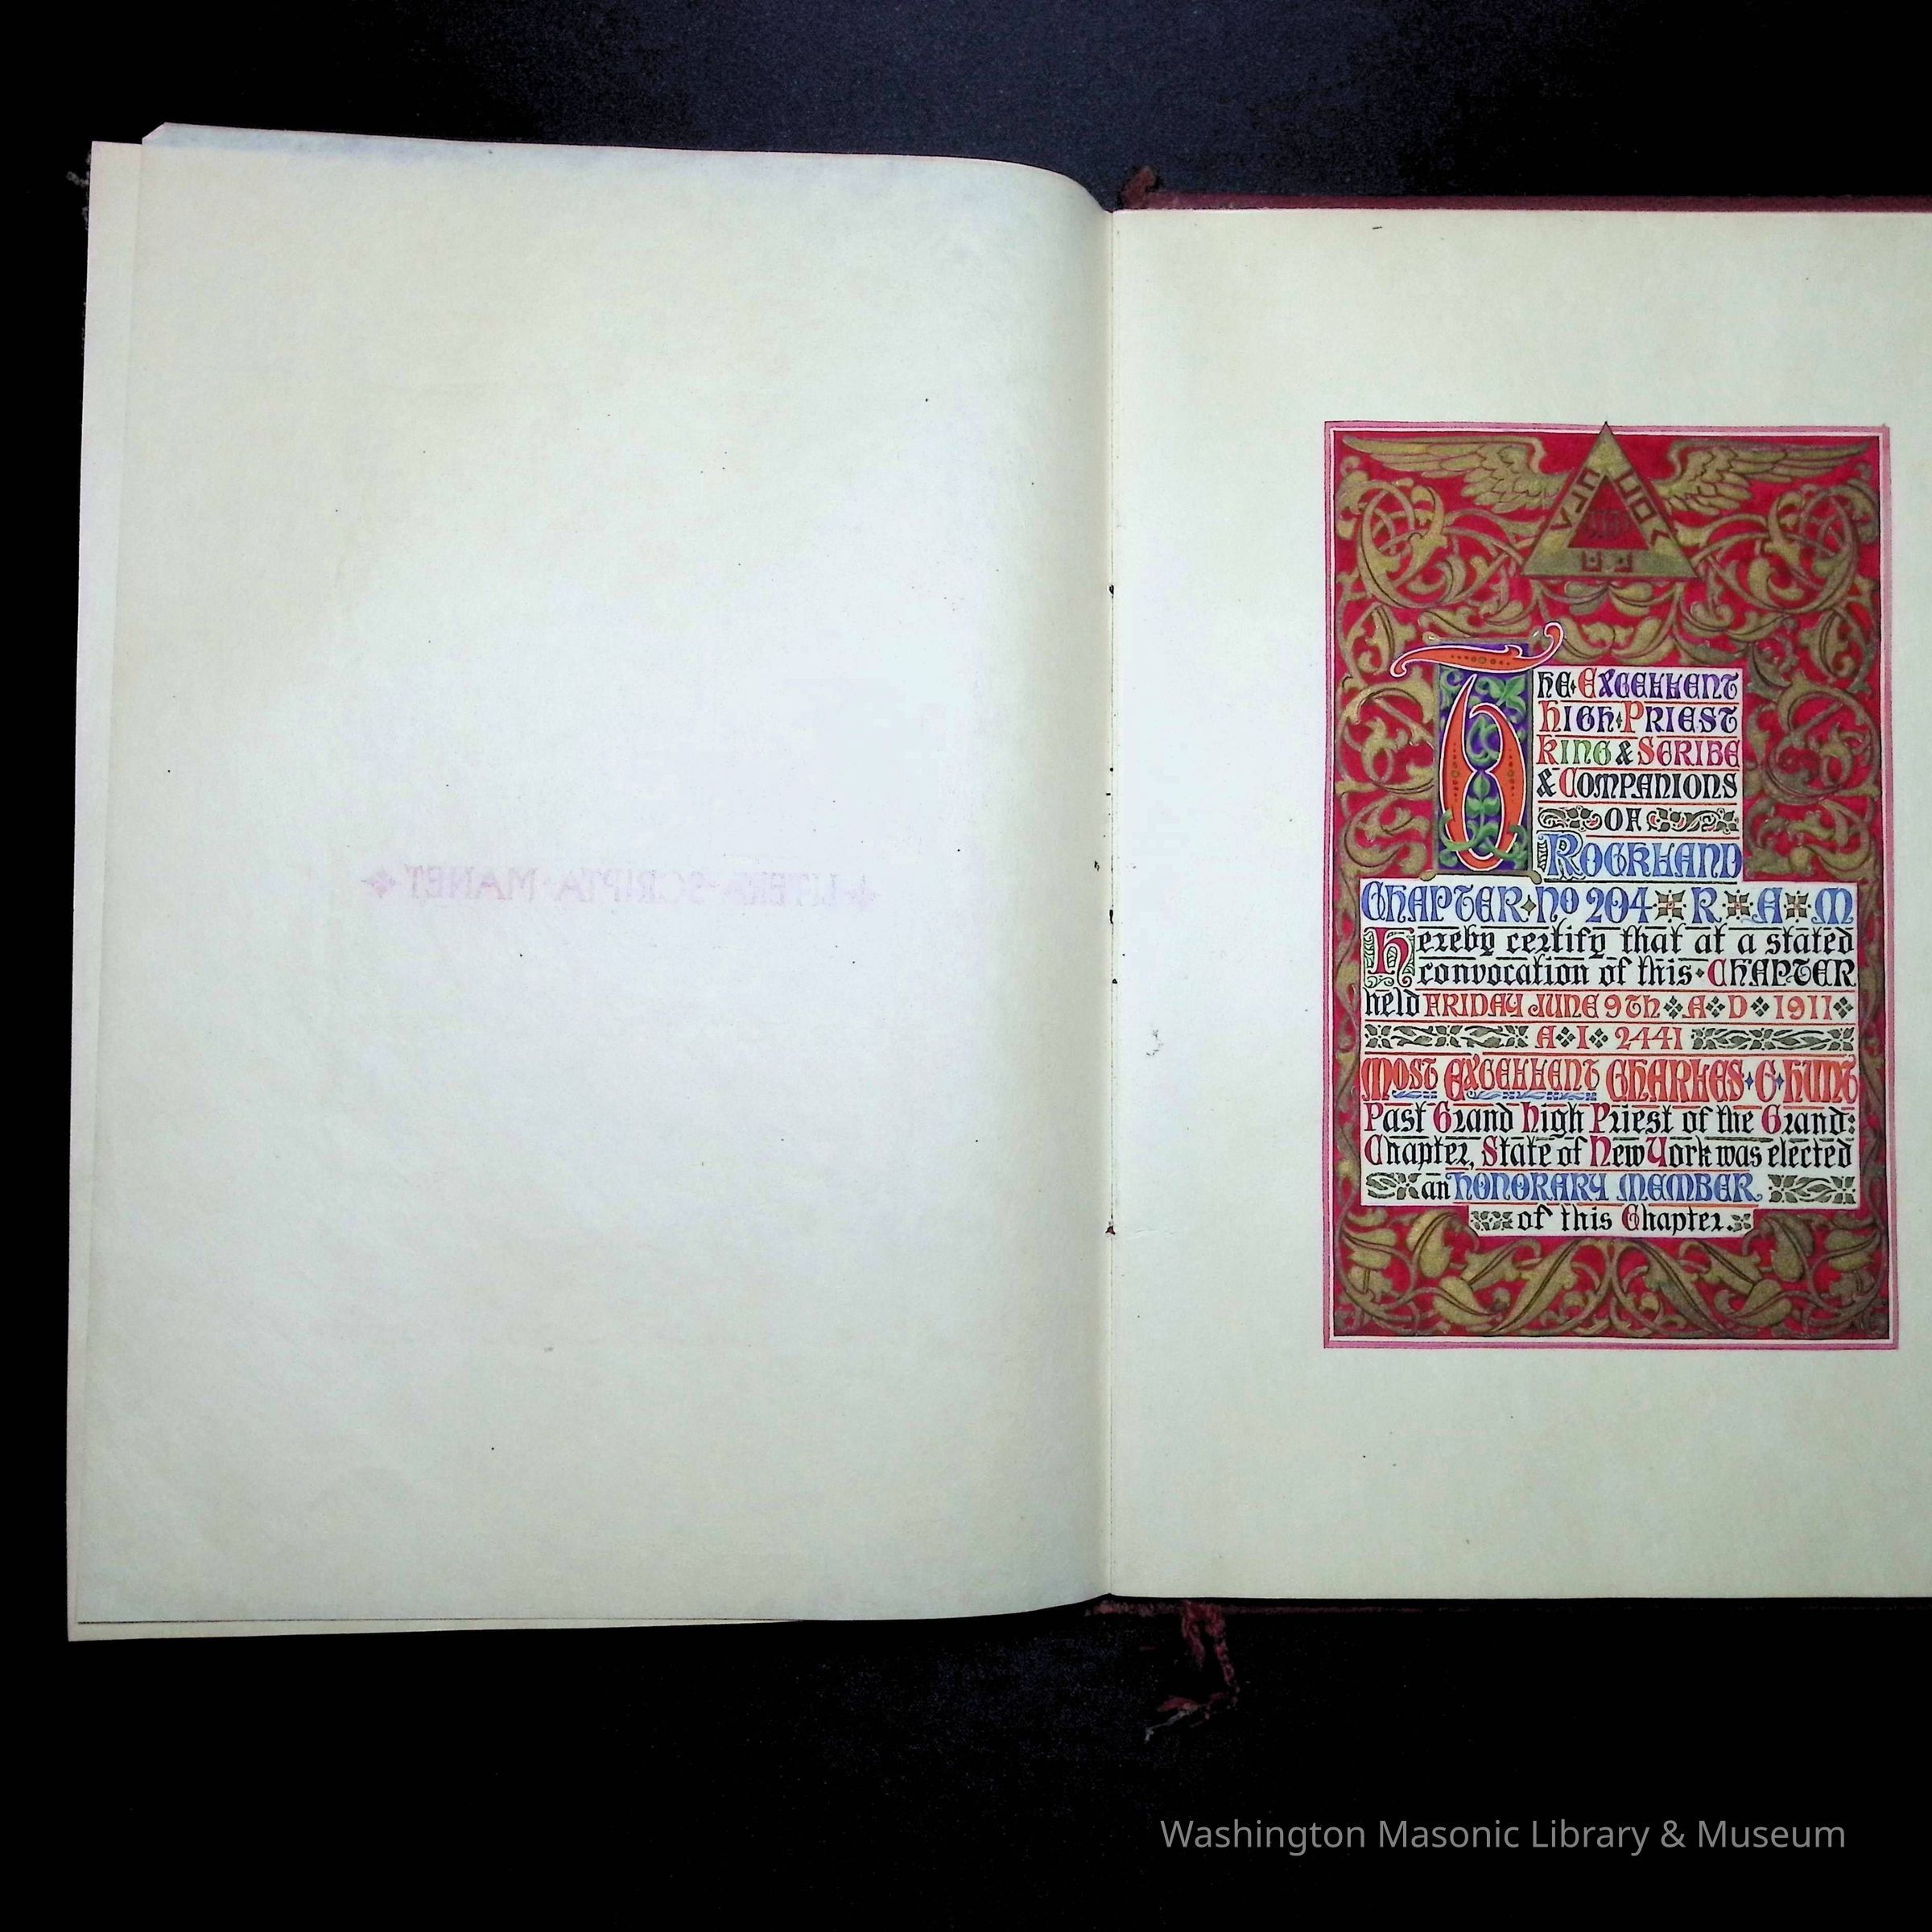 LITERA·SCRIPTA·MANET
The Excellent
High Priest
King & Scribe
& Companions
of
Rockland
Chapter No 204 R A M
Hereby certify that at a stated
convocation of this Chapter
held Friday June 9th A D 1911
A I 2441
Most Excellent Charles C Hunt
Past Grand High Priest of the Grand
Chapter, State of New York was elected
an Honorary Member
of this Chapter.
Washington Masonic Library & Museum